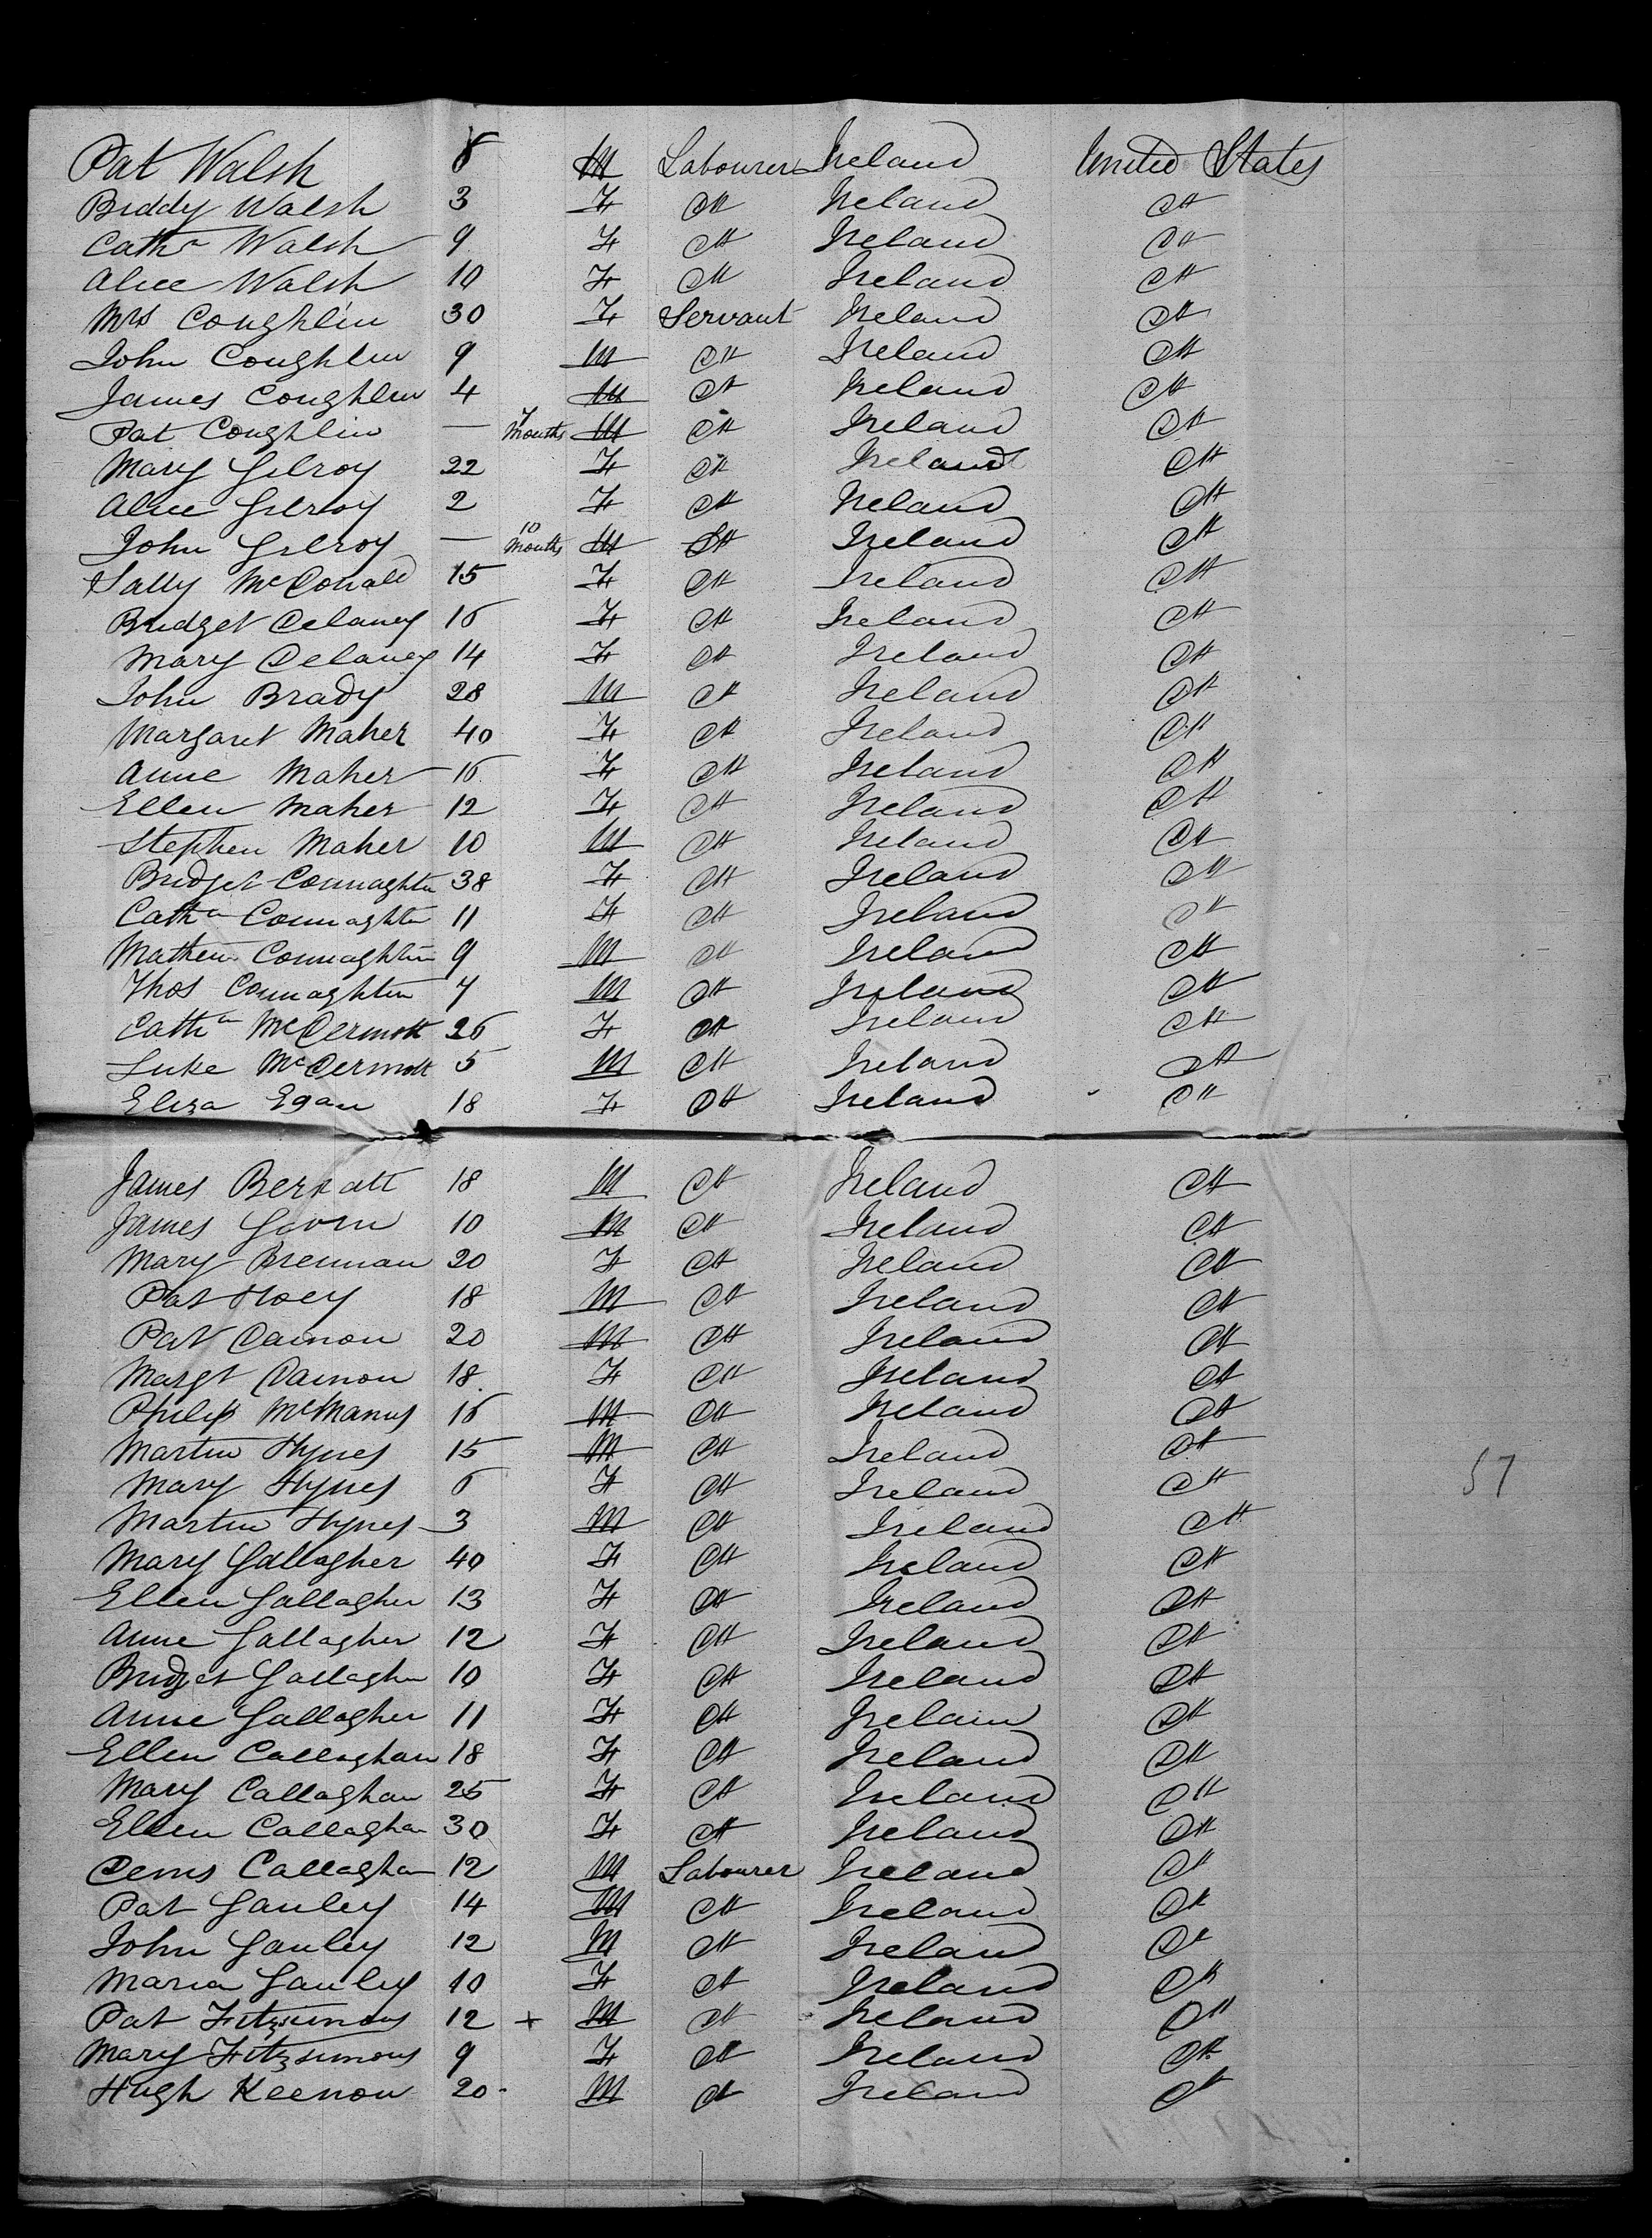 Pat Walsh 8 M Labourer Ireland United States
Biddy Walsh 3 F Dtt Ireland Dtt
Catha Walsh 9 F Dtt Ireland Dtt
Alice Walsh 10 F Dtt Ireland Dtt
Mrs Coughlin 30 F Servant Ireland Dtt
John Coughlin 9 M Dtt Ireland Dtt
James Coughlin 4 M Dtt Ireland Dtt
Pat Coughlin — 7 Months M Dtt Ireland Dtt
Mary Gilroy 22 F Dtt Ireland Dtt
Alice Gilroy 2 F Dtt Ireland Dtt
John Gilroy — 10 Months M Dtt Ireland Dtt
Sally McDonald 15 F Dtt Ireland Dtt
Bridget Delaney 16 F Dtt Ireland Dtt
Mary Delaney 14 F Dtt Ireland Dtt
John Brady 28 M Dtt Ireland Dtt
Margaret Maher 40 F Dtt Ireland Dtt
Anne Maher 16 F Dtt Ireland Dtt
Ellen Maher 12 F Dtt Ireland Dtt
Stephen Maher 10 M Dtt Ireland Dtt
Bridget Connaghtin 38 F Dtt Ireland Dtt
Catha Connaghtin 11 F Dtt Ireland Dtt
Mathew Connaghtin 9 M Dtt Ireland Dtt
Thos Connaghtin 7 M Dtt Ireland Dtt
Catha McDermott 26 F Dtt Ireland Dtt
Luke McDermott 5 M Dtt Ireland Dtt
Eliza Egan 18 F Dtt Ireland Dtt
James 18 M Dtt Ireland Dtt
James 10 M Dtt Ireland Dtt
Mary Brennan 20 F Dtt Ireland Dtt
Pat Hoey 18 M Dtt Ireland Dtt
Pat Damon 20 M Dtt Ireland Dtt
Margt Damon 18 F Dtt Ireland Dtt
Philip McManus 16 M Dtt Ireland Dtt
Martin Hynes 15 M Dtt Ireland Dtt
Mary Hynes 6 F Dtt Ireland Dtt
57
Martin Hynes 3 M Dtt Ireland Dtt
Mary Gallagher 40 F Dtt Ireland Dtt
Ellen Gallagher 13 F Dtt Ireland Dtt
Anne Gallagher 12 F Dtt Ireland Dtt
Bridget Gallagher 10 F Dtt Ireland Dtt
Anne Gallagher 11 F Dtt Ireland Dtt
Ellen Callaghan 18 F Dtt Ireland Dtt
Mary Callaghan 25 F Dtt Ireland Dtt
Ellen Callaghan 30 F Dtt Ireland Dtt
Denis Callaghan 12 M Labourer Ireland Dtt
Pat Gauley 14 M Dtt Ireland Dtt
John Gauley 12 M Dtt Ireland Dtt
Maria Gauley 10 F Dtt Ireland Dtt
Pat Fitzsimons 12 + M Dtt Ireland Dtt
Mary Fitzsimons 9 F Dtt Ireland Dtt
Hugh Keenon 20 M Dtt Ireland Dtt